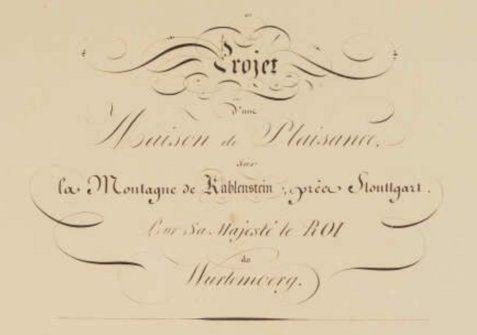 Projet
d'une
Maison de Plaisance,
sur
la Montagne de Kahlenstein, près Stouttgart.
Pour Sa Majesté le ROI
de
Wurtemberg.